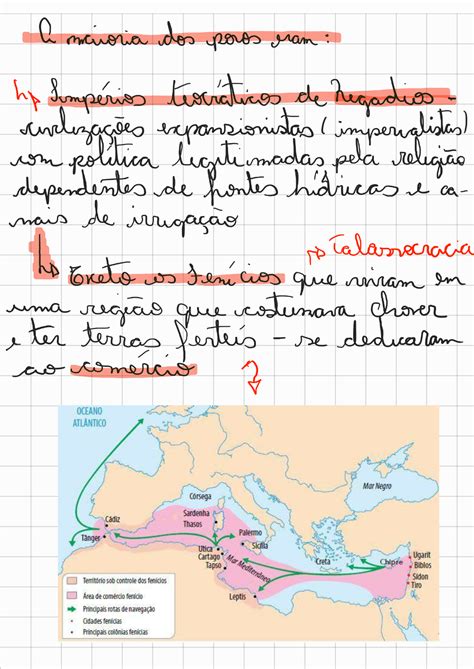 A maioria dos povos eram:
Impérios teocráticos de Regadios -
civilizações expansionistas (imperialistas)
com política legitimadas pela religião
dependentes de fontes hídricas e ca-
nais de irrigação
Talassocracia
Exeto os Fenícios que viviam em
uma região que costumava chover
e ter terras ferteis - se dedicaram
ao comércio
OCEANO
ATLÂNTICO
Mar Negro
Córsega
Sardenha
Thasos
Cádiz
Palermo
Tânger
Sicília
Utica
Cartago
Tapso
Mar Mediterrâneo
Creta
Chipre
Ugarit
Biblos
Sídon
Tiro
Leptis
Território sob controle dos fenícios
Área de comércio fenício
Principais rotas de navegação
Cidades fenícias
Principais colônias fenícias